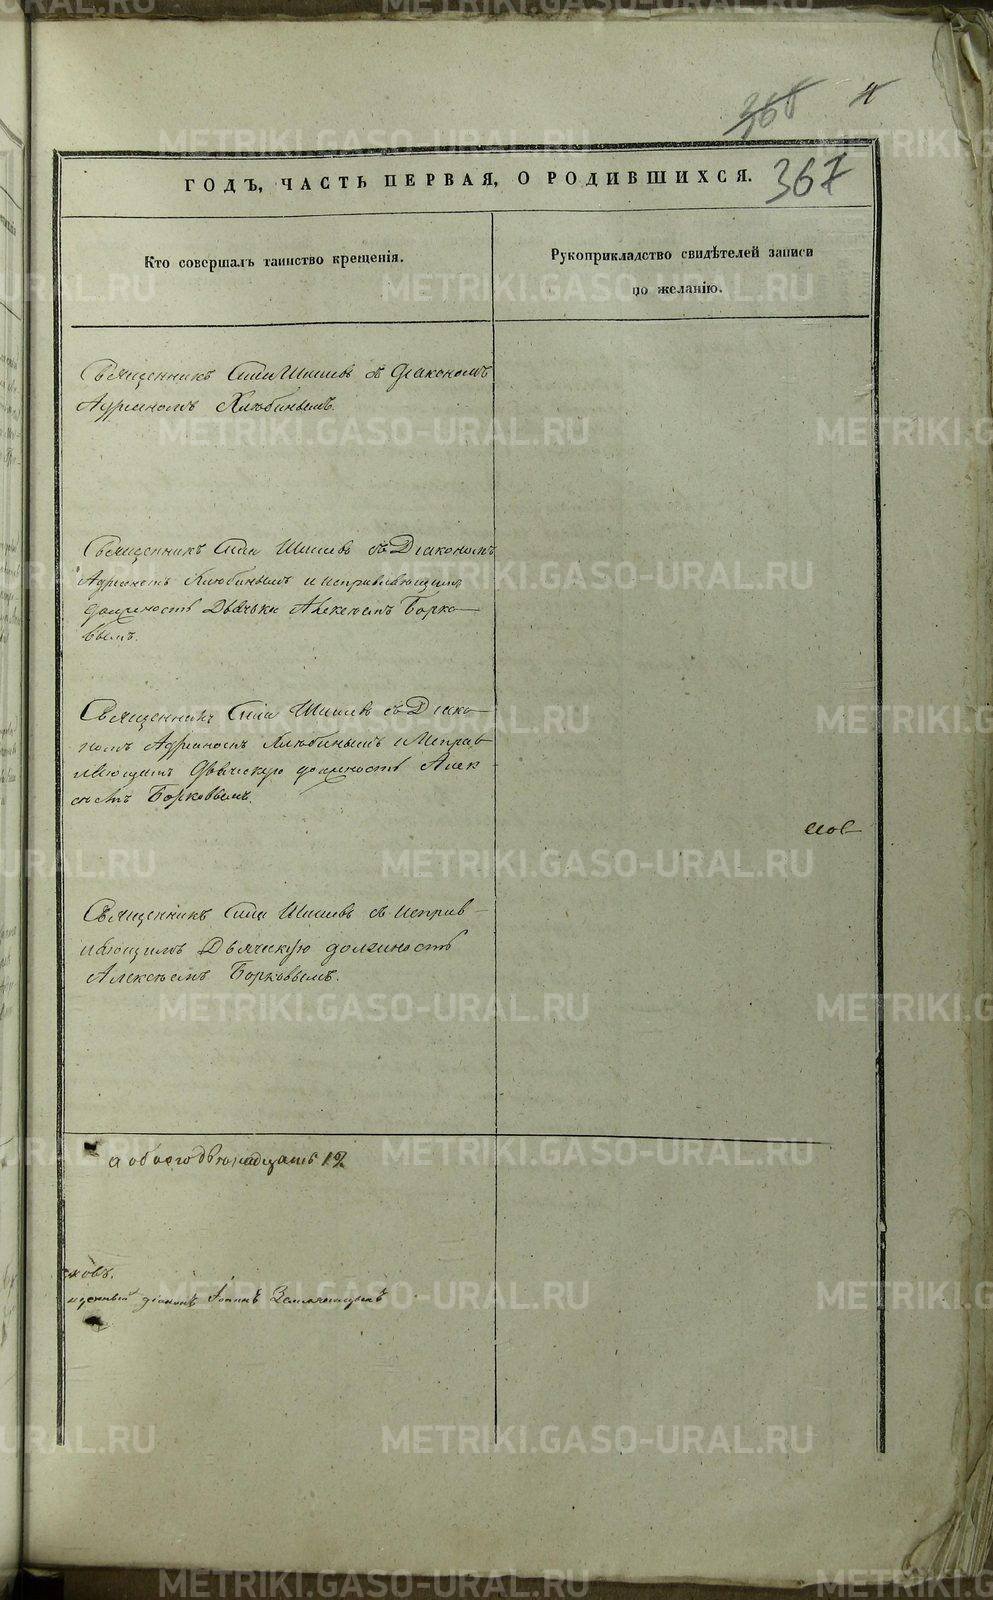 368
367
ГОДЪ, ЧАСТЬ ПЕРВАЯ, О РОДИВШИХСЯ.
Кто совершалъ таинство крещенія.
Рукоприкладство свидѣтелей записи
по желанію.
Священникъ Сила Шишевъ съ Діакономъ
Адріаномъ Клюбинымъ.
Священникъ Сила Шишевъ съ Діакономъ
Адріаномъ Клюбинымъ и исправляющимъ
должность Дьячка Алексѣемъ Борко-
вымъ.
Священникъ Сила Шишевъ съ Діако-
номъ Адріаномъ Клюбинымъ и Исправ-
ляющимъ Дьяческую должность Алек
сѣемъ Борковымъ.
Священникъ Сила Шишевъ съ исправ-
ляющимъ Дьяческую должность
Алексѣемъ Борковымъ.
а обоего двенадцать 12
ковъ.
діаконъ Іоаннъ
METRIKI.GASO-URAL.RU